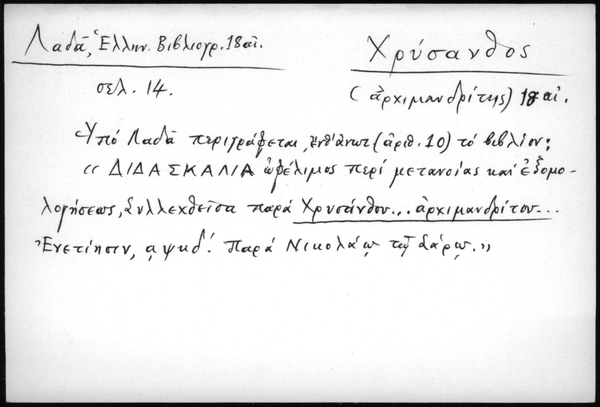 Λαδᾶ, Ἑλλην. Βιβλιογρ. 18 αἰ.
Χρύσανθος
σελ. 14.
(ἀρχιμανδρίτης) 18 αἰ.
Ὑπό Λαδᾶ περιγράφεται, ἐνθ' ἀνωτ. (ἀριθ. 10) τό βιβλίον;
«ΔΙΔΑΣΚΑΛΙΑ ὠφέλιμος περί μετανοίας καί ἐξομο-
λογήσεως, συλλεχθεῖσα παρά Χρυσάνθου... ἀρχιμανδρίτου...
Ἐνετίησιν, ͵αψκδ'. Παρά Νικολάῳ τῷ Σάρῳ.»